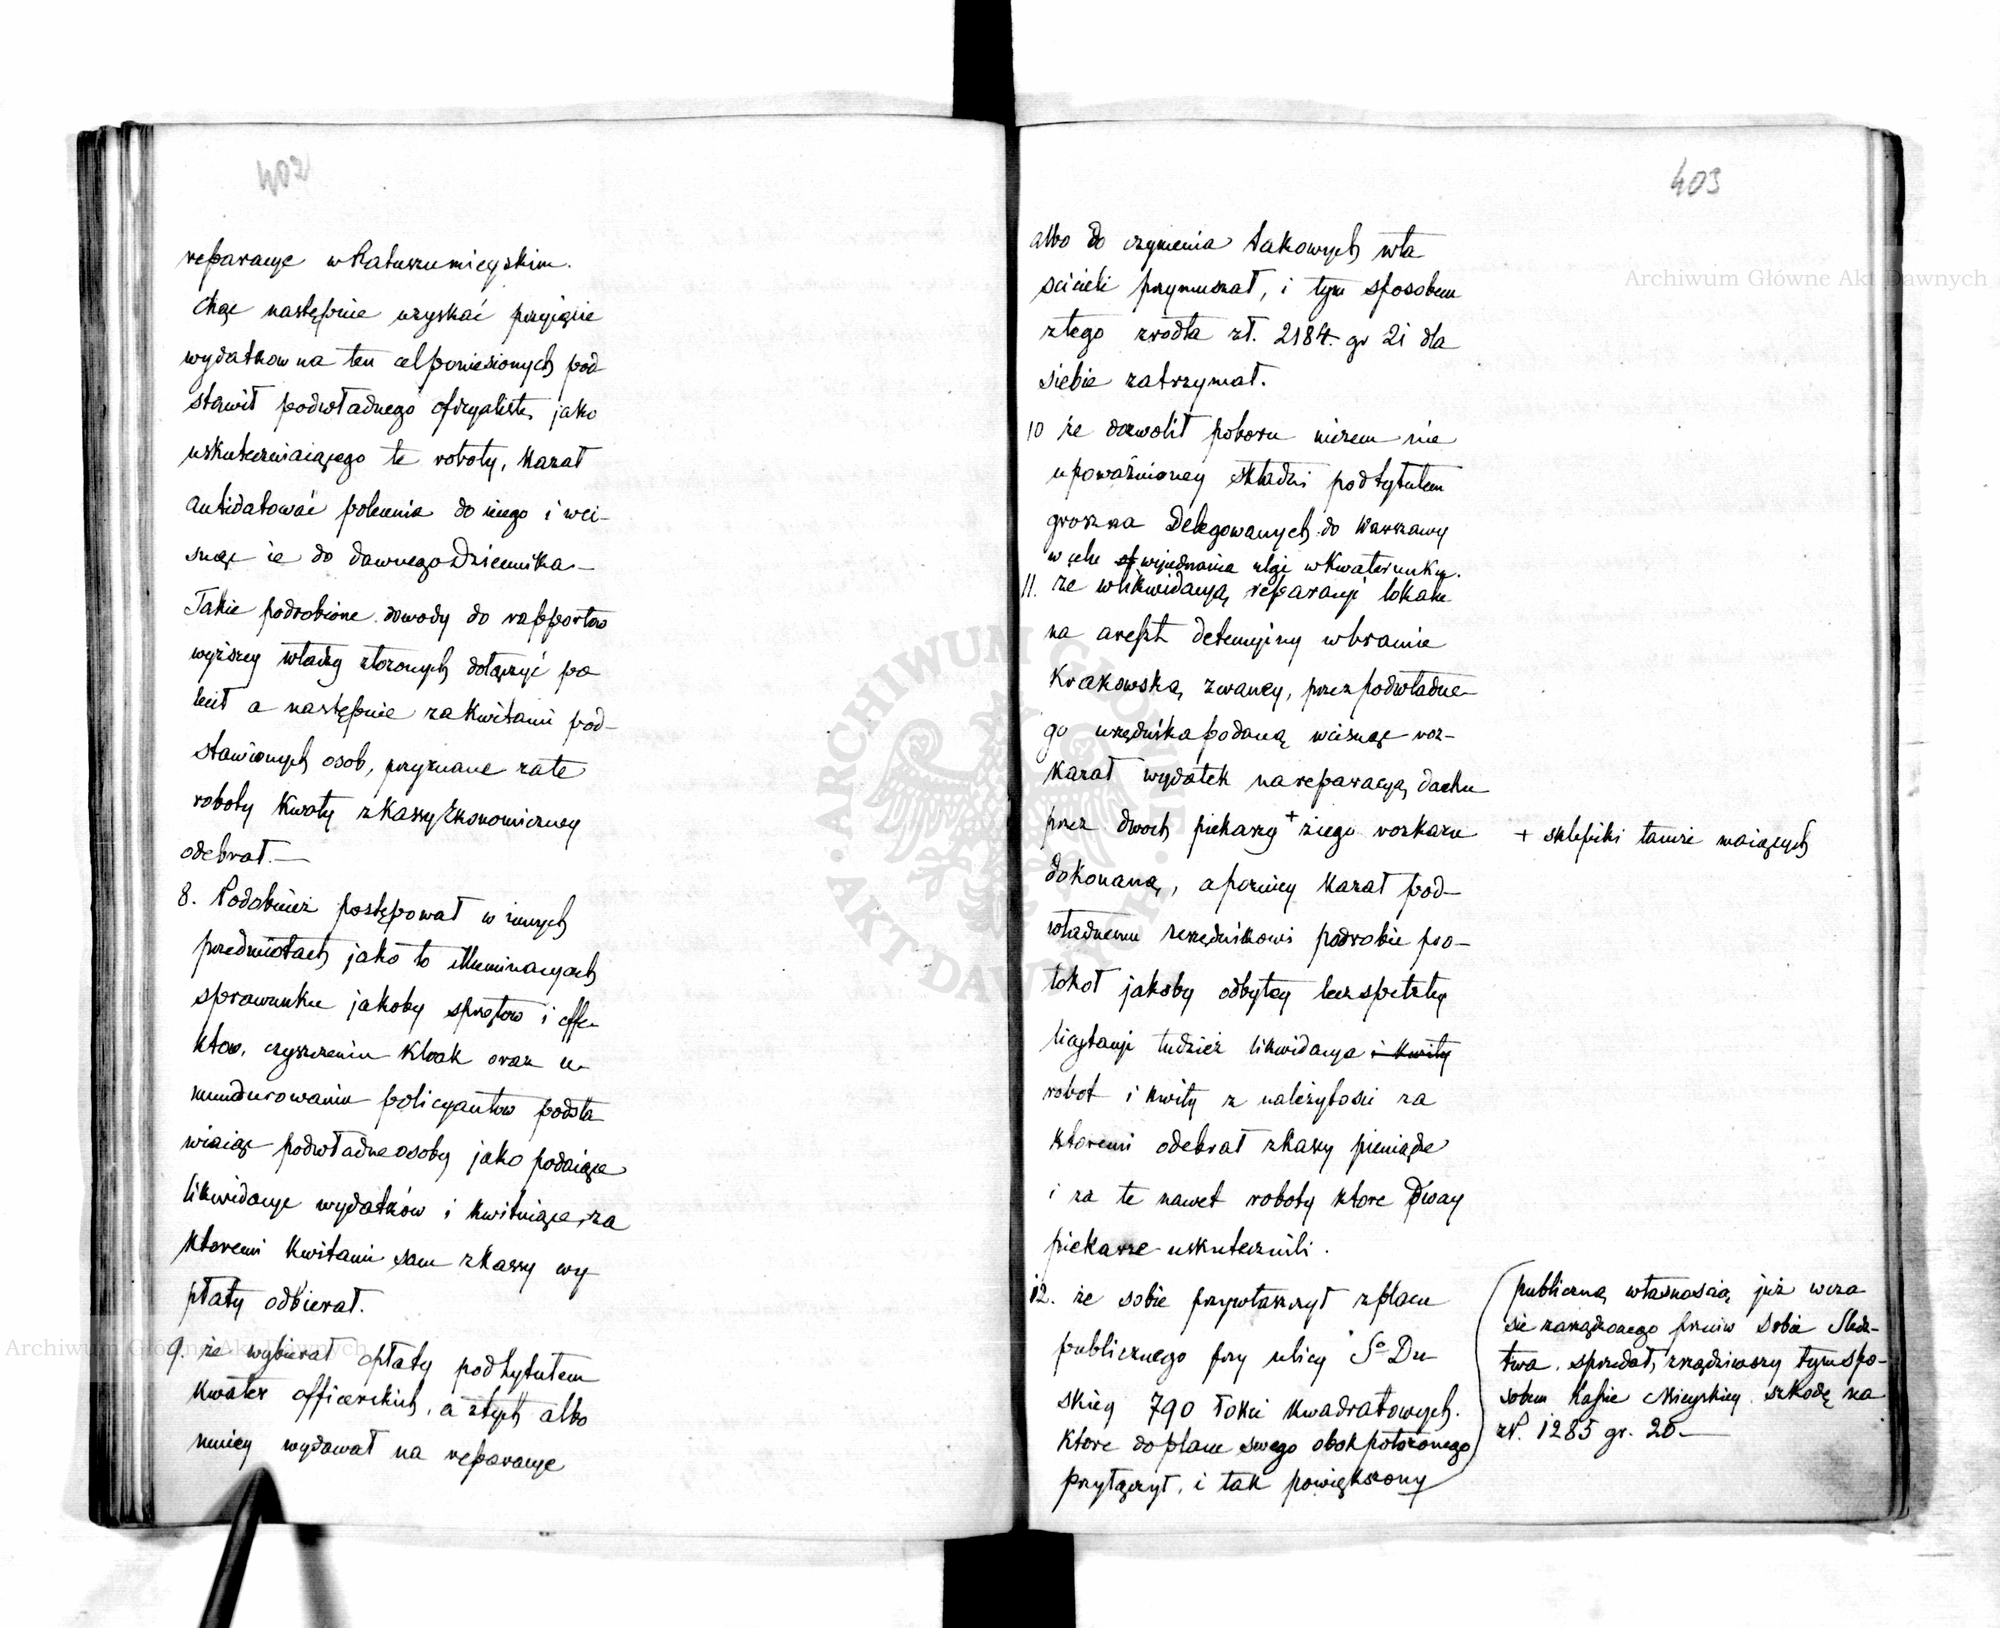 402
reparacye w Ratuszu mieyskim.
Chcąc następnie uzyskać przyięcie
wydatkow na ten cel poniesionych pod
stawił podwładnego oficyalistę, jako
uskuteczniaiącego te roboty, kazał
antidatować polecenia do niego i wci-
snąć ie do dawnego Dziennika —
Takie podrobione dowody do rapportow
wyższey władzy złozonych dołączyć po
lecił a następnie za kwitami pod-
stawionych osob, przyznane za te
roboty kwoty z kassy Ekonomiczney
odebrał. —
8. Podobnież postępował w innych
przedmiotach jako to illuminacyach
sprawunku jakoby sprzętow i effe
ktow, czyszczeniu kloak oraz u-
mundurowaniu policyantow podsta
wiaiąc podwładne osoby jako podaiące
likwidacye wydatków i kwituiące, za
ktoremi kwitami sam z kassy wy
płaty odbierał.
9. że wybierał opłaty pod tytułem
kwater officerskich, a z tych albo
mniey wydawał na reparacye
403
albo do czynienia takowych wła
scicieli przymuszał, i tym sposobem
z tego zrodła zł. 2184 gr 21 dla
siebie zatrzymał.
10 że dozwolił poboru niczem nie
upoważnioney składki pod tytułem
grosza na Delegowanych do Warszawy
w celu wyjednania ulgi w kwaterunku.
11. że w likwidacyą reparacyi lokalu
na areszt detencyiny w bramie
Krakowską zwaney, przez podwładne-
go urzędnika podaną wcisnąć roz-
kazał wydatek na reparacyą dachu
przez dwoch piekarzy + z iego rozkazu
+ sklepiki tamże maiących
dokonaną, a pozniey kazał pod-
władnemu urzędnikowi podrobić pro-
tokoł jakoby odbytey bezspełzłey
licytacyi tudzież likwidacya i kwity
robot i kwity z należytości za
ktoremi odebrał z kassy pieniądze
i za te nawet roboty ktore dway
piekarze uskutecznili.
12. że sobie przywłaszczył z placu
publicznego przy ulicy So Du
skiey 790 łokci kwadratowych.
ktore do placu swego obok położonego
przyłączył, i tak powiększony
publiczną własnością już w cza
sie zarządzonego przeciw sobie Śledz-
twa, sprzedał, zrządziwszy tym spo-
sobem Kassie Mieyskiey szkodę na
zł. 1285 gr. 20. —
Archiwum Główne Akt Dawnych
Archiwum Główne Akt Dawnych
ARCHIWUM GŁÓWNE · AKT DAWNYCH ·